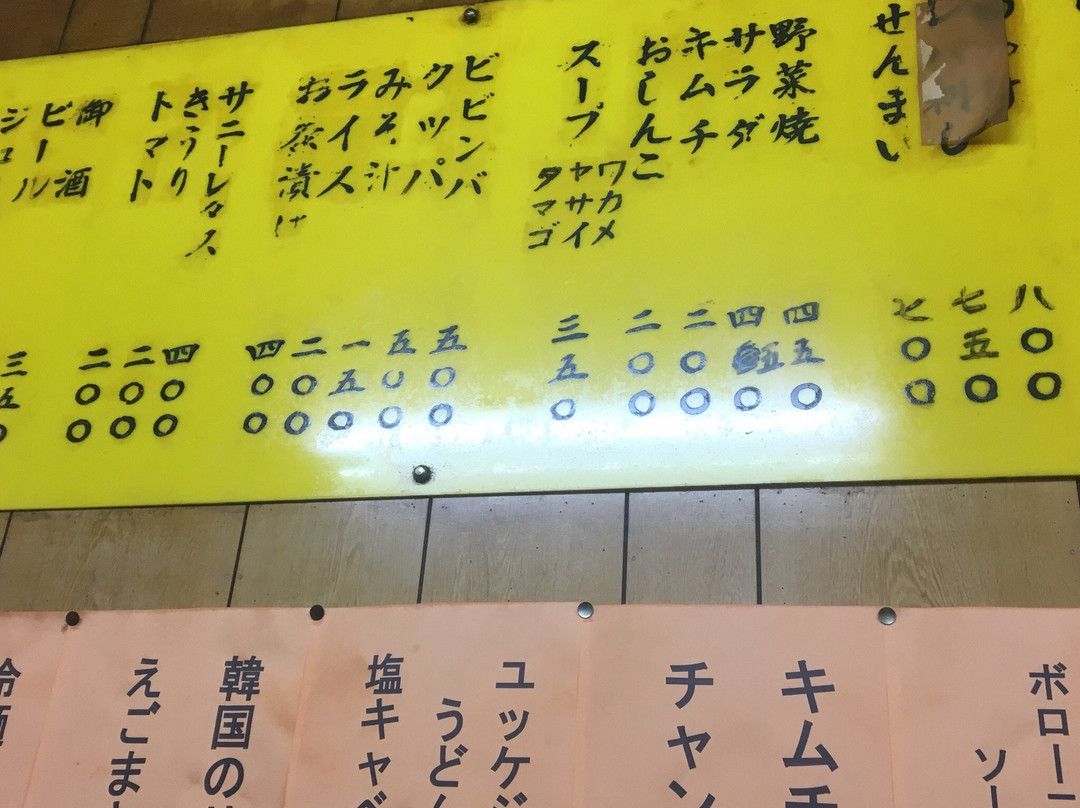 八〇〇
七五〇
せんまい 七〇〇
野菜焼 四五〇
サラダ 四五〇
キムチ 二〇〇
おしんこ 二〇〇
スープ ワカメ ヤサイ タマゴ 三五〇
ビビンバ 五〇〇
クッパ 五〇〇
みそ汁 一五〇
ライス 二〇〇
お茶漬け 四〇〇
サニーレタス 四〇〇
きうり 二〇〇
トマト 二〇〇
御酒 三五〇
ビール
ボローニ
ソー
キムチ
チャン
ユッケジ
うどん
塩キャベ
韓国の
えごま
冷麺